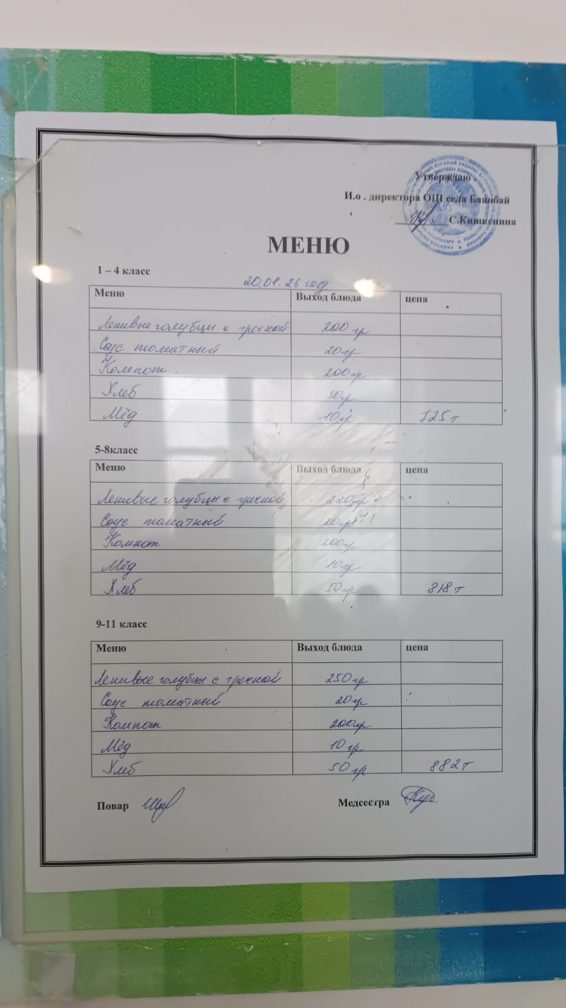 Утверждаю
И.о . директора ОШ села Башбай
С.Кишкенина
МЕНЮ
1 – 4 класс
20.01.26 год
Меню Выход блюда цена
Ленивые голубцы с гречкой 200 гр
Соус томатный 20гр
Компот 200гр
Хлеб 30гр
Мёд 10гр 725 т
5-8класс
Меню Выход блюда цена
Ленивые голубцы с гречкой гр
Соус томатный 20гр
Компот 200гр
Мёд 10гр
Хлеб 50гр 818 т
9-11 класс
Меню Выход блюда цена
Ленивые голубцы с гречкой 250 гр
Соус томатный 20гр
Компот 200гр
Мёд 10гр
Хлеб 50гр 882 т
Повар Медсестра